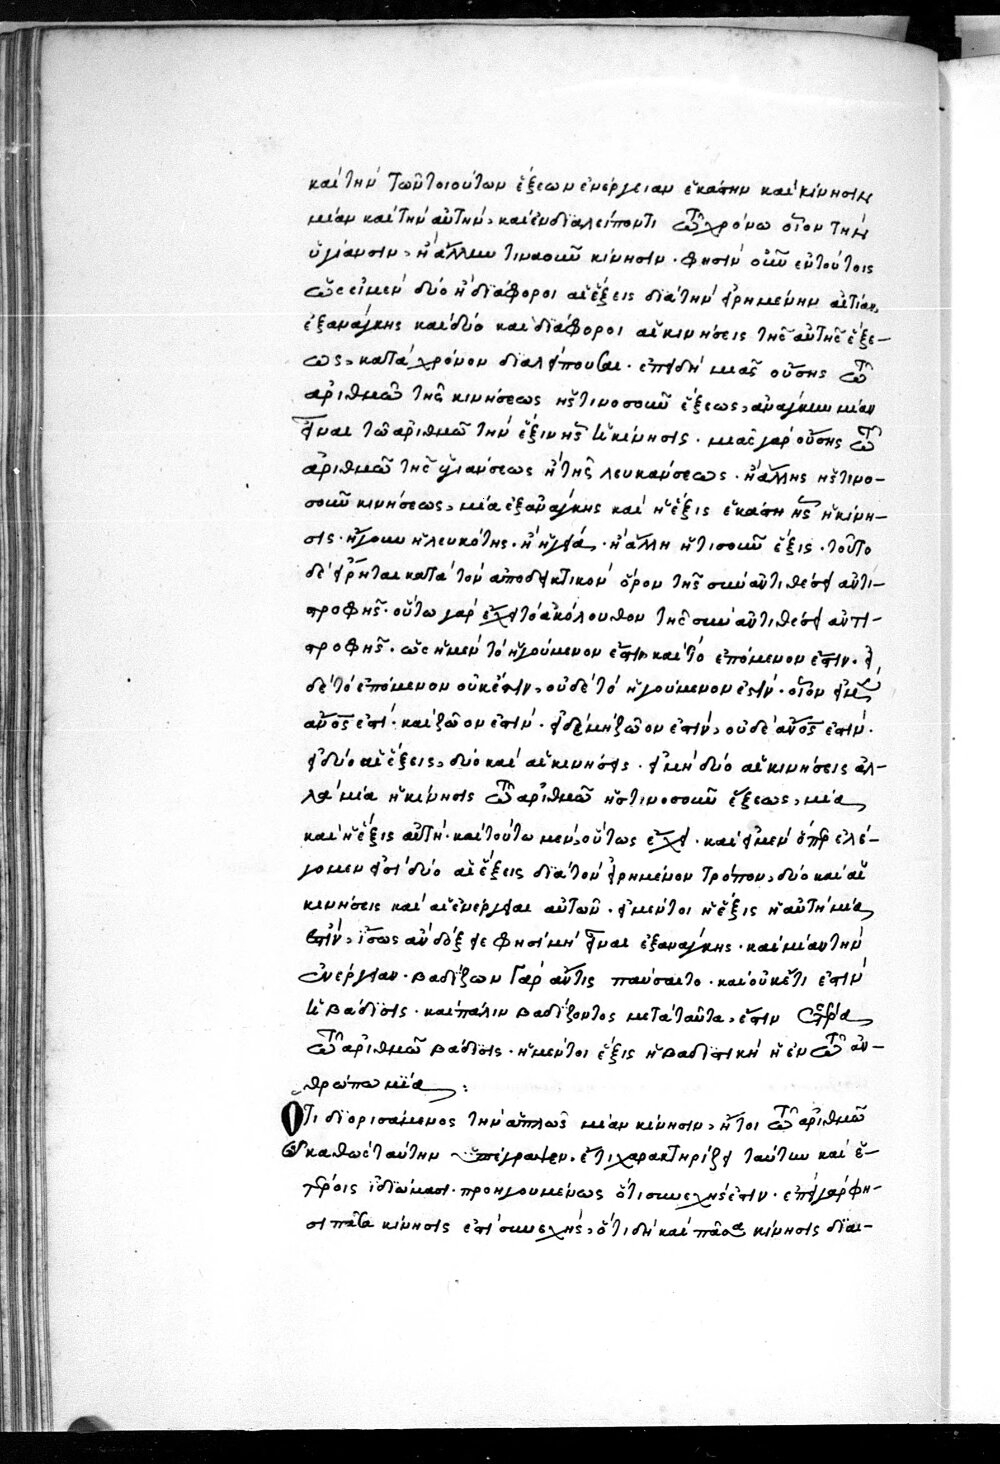 καὶ τὴν τῶν τοιούτων ἕξεων ἐνέργειαν ἑκάστην καὶ κίνησιν
μίαν καὶ τὴν αὐτὴν, καὶ ἐν διαλείποντι τῷ χρόνω οἷον τὴν
ὑγίανσιν, ἢ ἄλλην τιναοῦν κίνησιν. φησὶν οὖν ἐν τούτοις
ὡς εἰ μὲν δύο ἢ διάφοροι αἱ ἕξεις διὰ τὴν εἰρημένην αἰτίαν,
ἐξανάγκης καὶ δύο καὶ διάφοροι αἱ κινήσεις τῆς αὐτῆς ἕξε-
ως, κατὰ χρόνον διαλείπουσαι. ἐπειδὴ μιᾶς οὔσης τῷ
ἀριθμῶ τῆς κινήσεως ἡστινοσοῦν ἕξεως, ἀνάγκη μίαν
εἶναι τῶ ἀριθμῶ τὴν ἕξιν ἧς ἡ κίνησις. μιᾶς γὰρ οὔσης τῷ
ἀριθμῶ τῆς ὑγιάνσεως ἢ τῆς λευκάνσεως. ἢ ἄλλης ἡστινο-
σοῦν κινήσεως, μία ἐξανάγκης καὶ ἡ ἕξις ἑκάστη ἧς ἡ κίνη-
σις. ἤγουν ἡ λευκότης. ἢ ἡ ὑγεία. ἢ ἄλλη ἥτισοῦν ἕξις. τοῦτο
δὲ εἴρηται κατὰ τὸν ἀποδεικτικὸν ὅρον τῆς σὺν ἀντιθέσει ἀντι-
στροφῆς. οὕτω γὰρ ἔχει τὸ ἀκόλουθον τῆς σὺν ἀντιθέσει ἀντι-
στροφῆς. ὡς ἢ μὲν τὸ ἡγούμενον ἔστιν καὶ τὸ ἑπόμενον ἔστιν. εἰ
δὲ τὸ ἑπόμενον οὐκ ἔστιν, οὐδὲ τὸ ἡγούμενον ἐστίν. οἷον εἰ μὲν
ἄνος ἐστὶ. καὶ ζῶον ἐστίν. εἰ δὲ μὴ ζῶον ἐστὶν, οὐδὲ ἄνος ἐστίν.
εἰ δύο αἱ ἕξεις, δύο καὶ αἱ κινήσεις. εἰ μὴ δύο αἱ κινήσεις ἀλ-
λὰ μία ἡ κίνησις τῷ ἀριθμῶ ἡστινοσοῦν ἕξεως, μία
καὶ ἡ ἕξις αὐτή. καὶ τοῦτο μὲν, οὕτως ἔχει. καὶ εἰ μὲν ὅπερ ἐλέ-
γομεν εἰσὶ δύο αἱ ἕξεις διὰ τὸν εἰρημένον τρόπον, δύο καὶ αἱ
κινήσεις καὶ αἱ ἐνέργειαι αὐτῶν. εἰ μέντοι ἡ ἕξις ἡ αὐτὴ μία
ἐστὶν, ἴσως ἂν δόξειε φησὶ μὴ εἶναι ἐξανάγκης. καὶ μίαν τὴν
ἐνέργειαν. βαδίζων γὰρ ἄν τις παύσαιτο. καὶ οὐκέτι ἐστὶν
ἡ βάδισις. καὶ πάλιν βαδίζοντος μετὰ ταῦτα, ἔστιν ἑτέρα
τῷ ἀριθμῶ βάδισις. ἡ μέντοι ἕξις ἡ βαδιστικὴ ἡ ἐν τῷ ἀν-
θρώπω μία:
Ὅτι διορισάμενος τὴν ἁπλῶς μίαν κίνησιν, ἤτοι τῷ ἀριθμῶ
καθὼς ταύτην ὑπέγραψεν. ἔτι χαρακτηρίζει ταύτην καὶ ἑ-
τέροις ἰδιώμασι. προηγουμένως ὅτι συνεχής ἐστιν. ἐπεὶ γὰρ φη-
σι πᾶσα κίνησις ἐστὶ συνεχής, ὅτι δὴ καὶ πᾶσα κίνησις διαι-